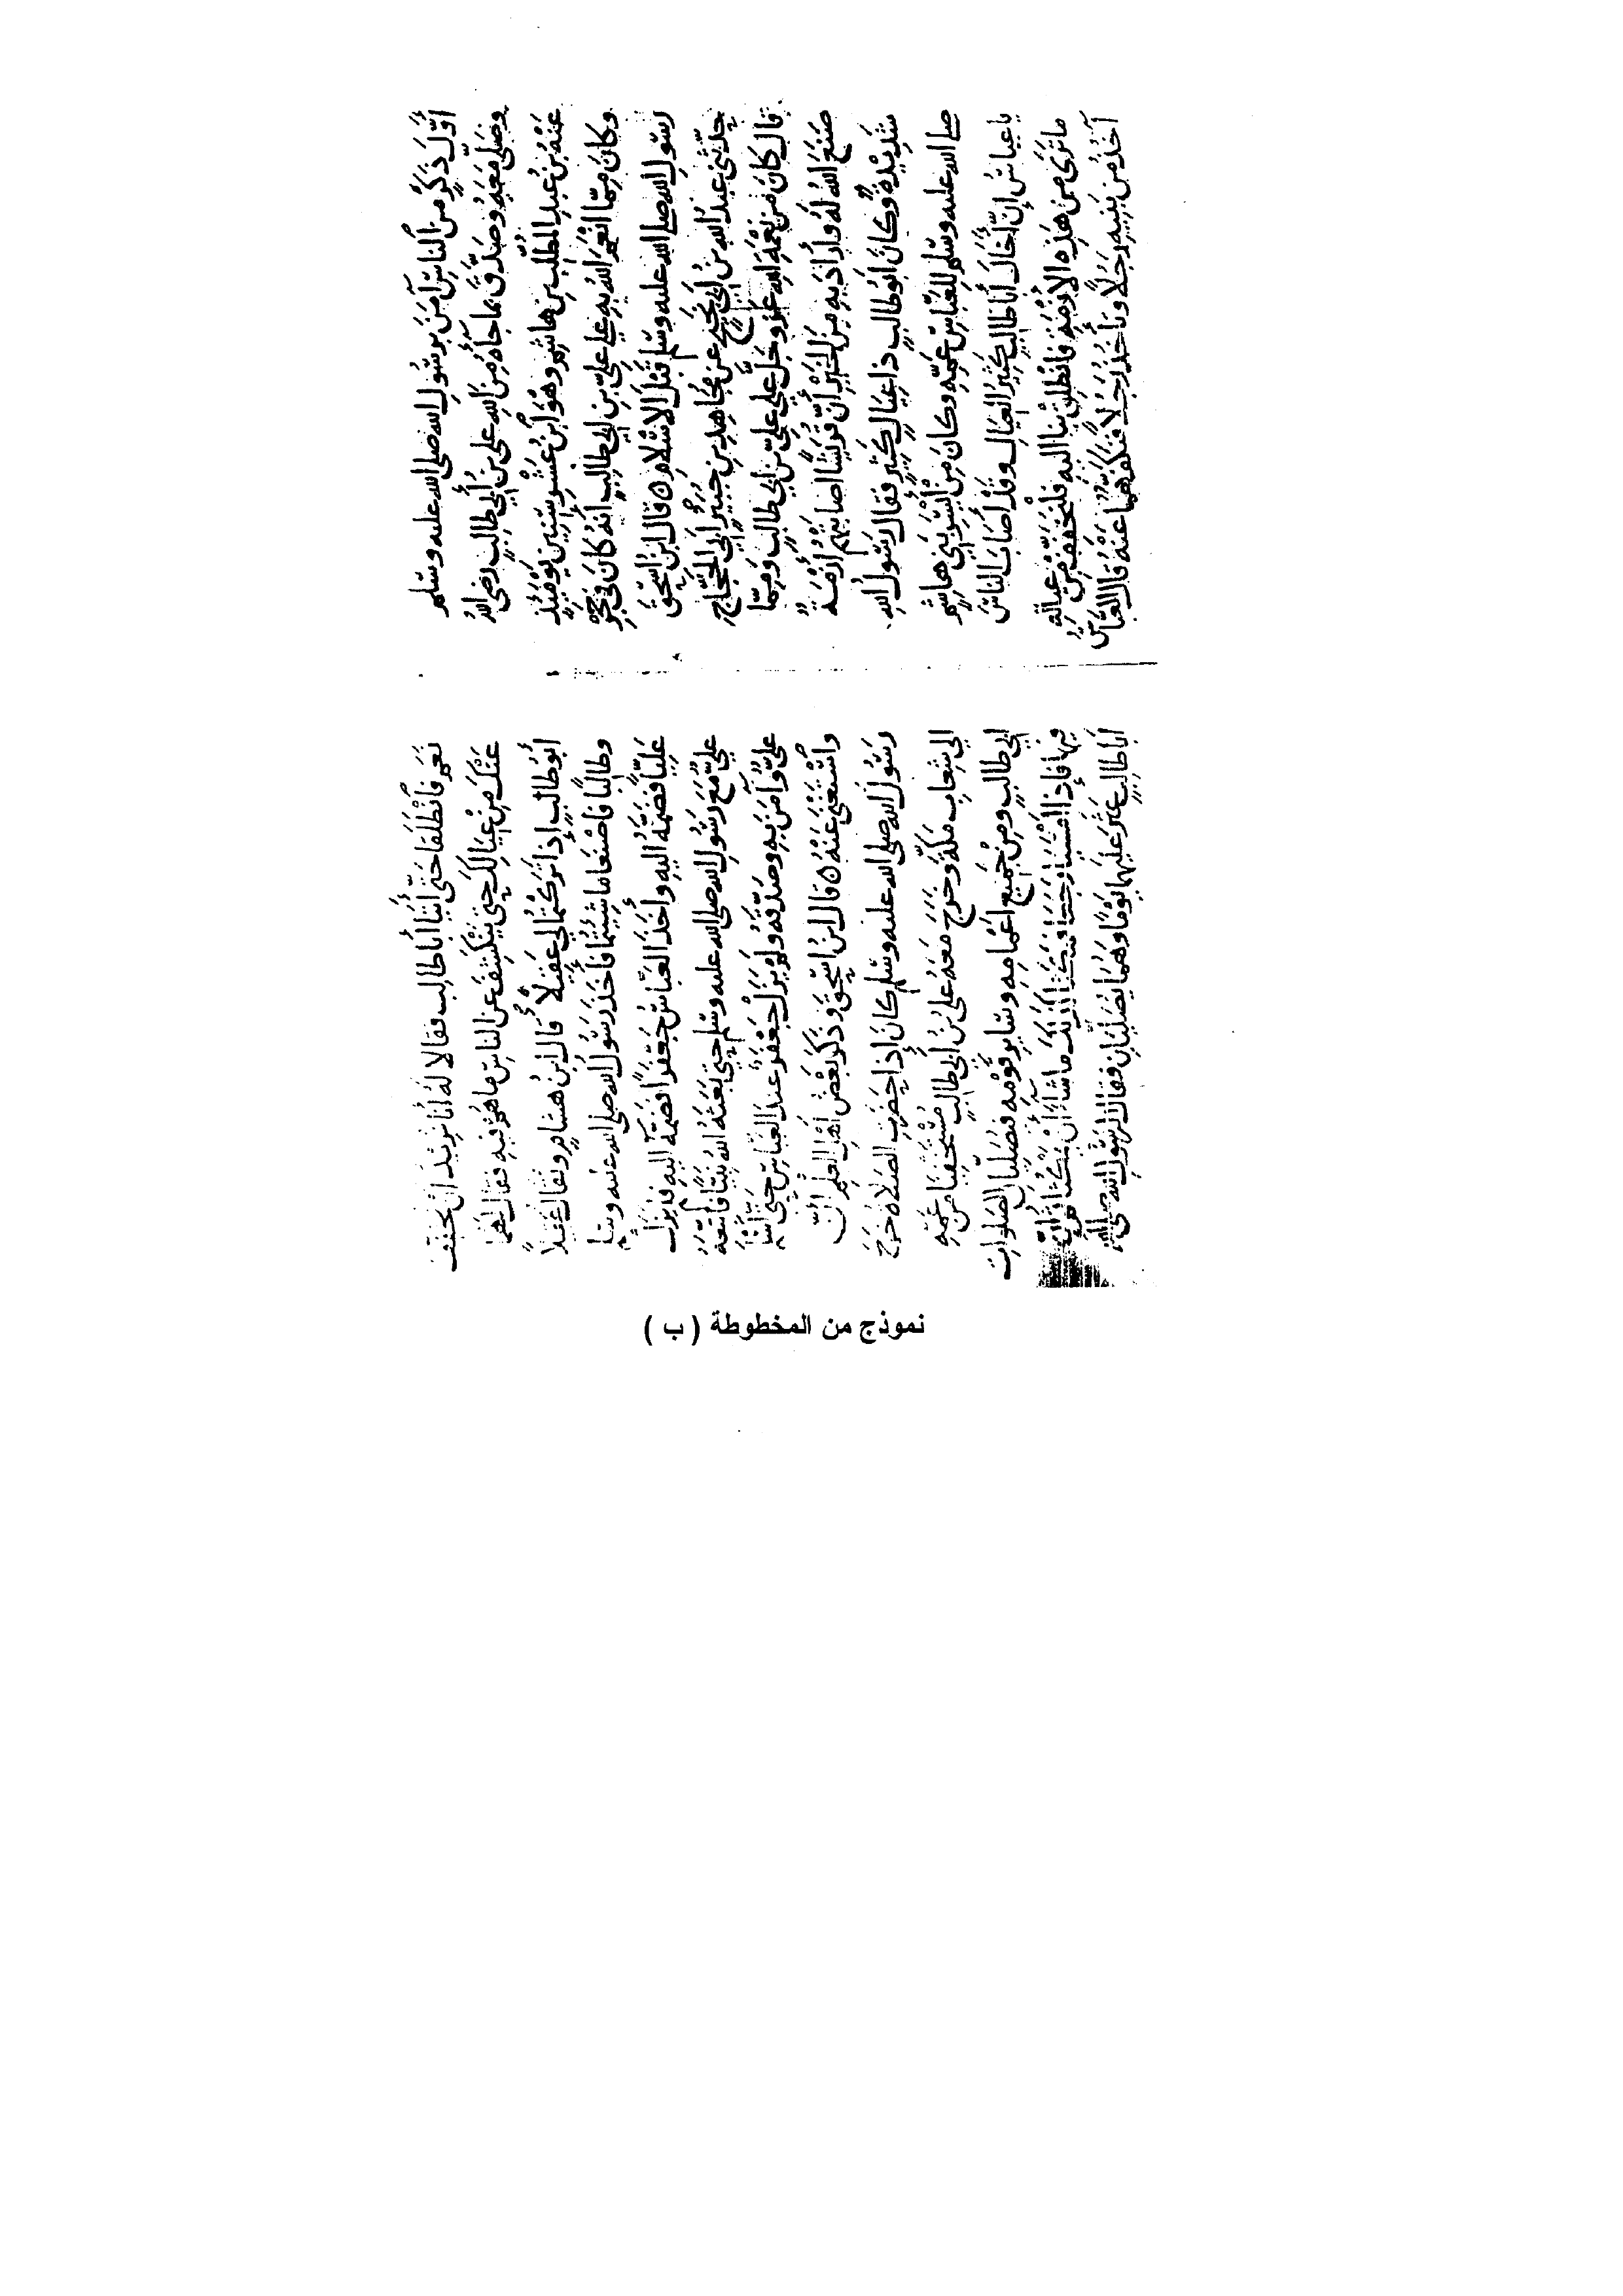 أَوَّلَ ذَكَرٍ مِنَ النَّاسِ آمَنَ بِرَسُولِ الله صلى الله عليه وسلم
وَصَلَّى مَعَهُ وَصَدَّقَ بِمَا جَاءَهُ مِنَ اللهِ علي بنُ أَبي طالبٍ رضي اللهُ
عَنْهُ بْنِ عَبدِ المطَّلِبِ بنِ هاشِمٍ وهُوَ ابنُ عَشْرِ سِنِينَ يَوْمَئِذٍ
وكانَ مِمَّا أنْعَمَ اللهُ بِهِ على عليِّ بنِ أبي طالبٍ أَنَّهُ كانَ في حَجْرِ
رَسُولِ الله صلى الله عليه وسلم قَبْلَ الإسْلامِ ٥ قالَ ابنُ إسْحقَ
حدَّثَني عَبْدُ اللهِ بنُ أبي نَجِيحٍ عَنْ مُجَاهِدِ بنِ جَبْرٍ أبي الحَجَّاجِ
قالَ كانَ مِنْ نِعْمَةِ اللهِ عزَّ وجلَّ على عليِّ بنِ أبي طالبٍ ومِمَّا
صَنَعَ اللهُ لَهُ وأرادَ بِهِ مِنَ الخَيْرِ أنَّ قُرَيْشًا أصابَتْهُمْ أَزْمَةٌ
شَدِيدَةٌ وكانَ أبُو طالِبٍ ذا عِيَالٍ كَثِيرٍ فقالَ رَسُولُ اللهِ
صلى الله عليه وسلم للعَبَّاسِ عَمِّهِ وكانَ مِنْ أَيْسَرِ بَنِي هاشِمٍ
يا عباسُ إنَّ أَخاكَ أبا طالِبٍ كثيرُ العِيَالِ وقَدْ أصَابَ الناسَ
ما تَرَى مِنْ هَذِهِ الأَزْمَةِ فانْطَلِقْ بِنا إليْهِ فلْنُخَفِّفْ مِنْ عِيالِهِ
آخُذُ مِنْ بَنِيهِ رَجُلًا وتَأْخُذُ رَجُلًا فنَكْفُهُمَا عَنْهُ قالَ العَبَّاسُ
نَعَمْ فانْطَلَقَا حَتَّى أَتَيَا أبَا طالِبٍ فقالا لَهُ إنَّا نُرِيدُ أنْ نُخَفِّفَ
عَنْكَ مِنْ عِيَالِكَ حتَّى يَنْكَشِفَ عَنِ الناسِ ما هُمْ فيهِ فقالَ لَهُمَا
أبُو طالِبٍ إذا تَرَكْتُمَا لِي عَقِيلًا قالَ ابنُ هشامٍ ويُقالُ عَقِيلًا
وطالِبًا فاصْنَعَا ما شِئْتُمَا فأَخَذَ رَسُولُ الله صلى الله عليه وسلم
عَلِيًّا فضَمَّهُ إليهِ وأخَذَ العَبَّاسُ جَعْفَرًا فضَمَّهُ إليهِ فلمْ يَزَلْ
عليٌّ مَعَ رَسُولِ الله صلى الله عليه وسلم حتى بَعَثَهُ اللهُ نَبِيًّا فاتَّبَعَهُ
عليٌّ وآمَنَ بِهِ وصَدَّقَهُ ولَمْ يَزَلْ جَعْفَرُ عندَ العَبَّاسِ حتَّى أَسْلَمَ
واسْتَغْنَى عَنْهُ ٥ قال ابنُ إسْحقَ وذَكَرَ بَعْضُ أهلِ العِلْمِ أنَّ
رَسُولَ الله صلى الله عليه وسلم كانَ إذا حَضَرَتِ الصَّلاةُ خَرَجَ
إلى شِعَابِ مَكَّةَ وخَرَجَ مَعَهُ علي بنُ أبي طالِبٍ مُسْتَخْفِيًا مِنْ عَمِّهِ
أبي طالِبٍ ومِنْ جَمِيعِ أعْمَامِهِ وسَايرِ قَوْمِهِ فيُصَلِّيانِ الصَّلَوَاتِ
فيها فإذا أَمْسَيَا رَجَعَا فمَكَثَا كذلكَ ما شاءَ اللهُ أنْ يَمْكُثَا ثُمَّ إنَّ
أبا طالِبٍ عَثَرَ عَلَيهِمَا يَوْمًا وهُمَا يُصَلِّيَانِ فقالَ لِرَسُولِ الله صلى
نموذج من المخطوطة ( ب )